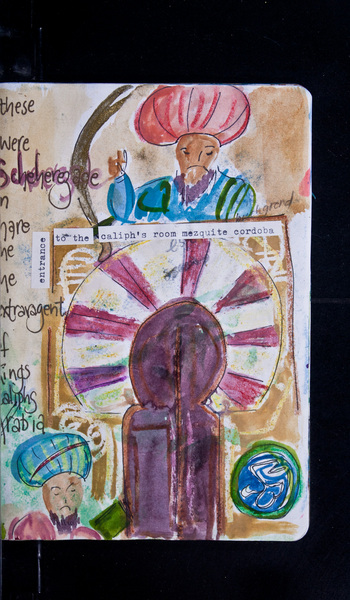 these
were
Scheheregade
n
hare
he
he
extravagent
f
ings
aliphs
rabia
entrance
to the caliph's room mezquite cordoba